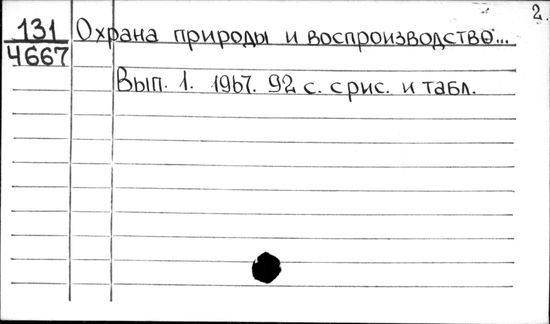 2.
131 Охрана природы и воспроизводство...
4667
Вып. 1. 1967. 92 с. с рис. и табл.